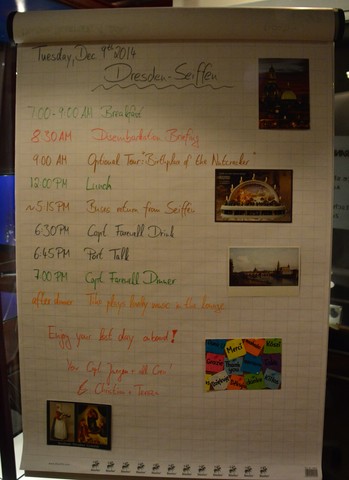 Tuesday, Dec 9th 2014
Dresden-Seiffen
7:00-9:00 AM Breakfast
8:30 AM Disembarkation Briefing
9:00 AM Optional Tour "Birthplace of the Nutcracker"
12:00 PM Lunch
~5:15 PM Buses return from Seiffen
6:30 PM Capt. Farwell Drink
6:45 PM Port Talk
7:00 PM Capt. Farwell Dinner
after dinner Tilo plays lovely music in the lounge
Enjoy your last day onboard!
Your Capt. Jurgen & all Crew
& Christine & Tereza
Merci